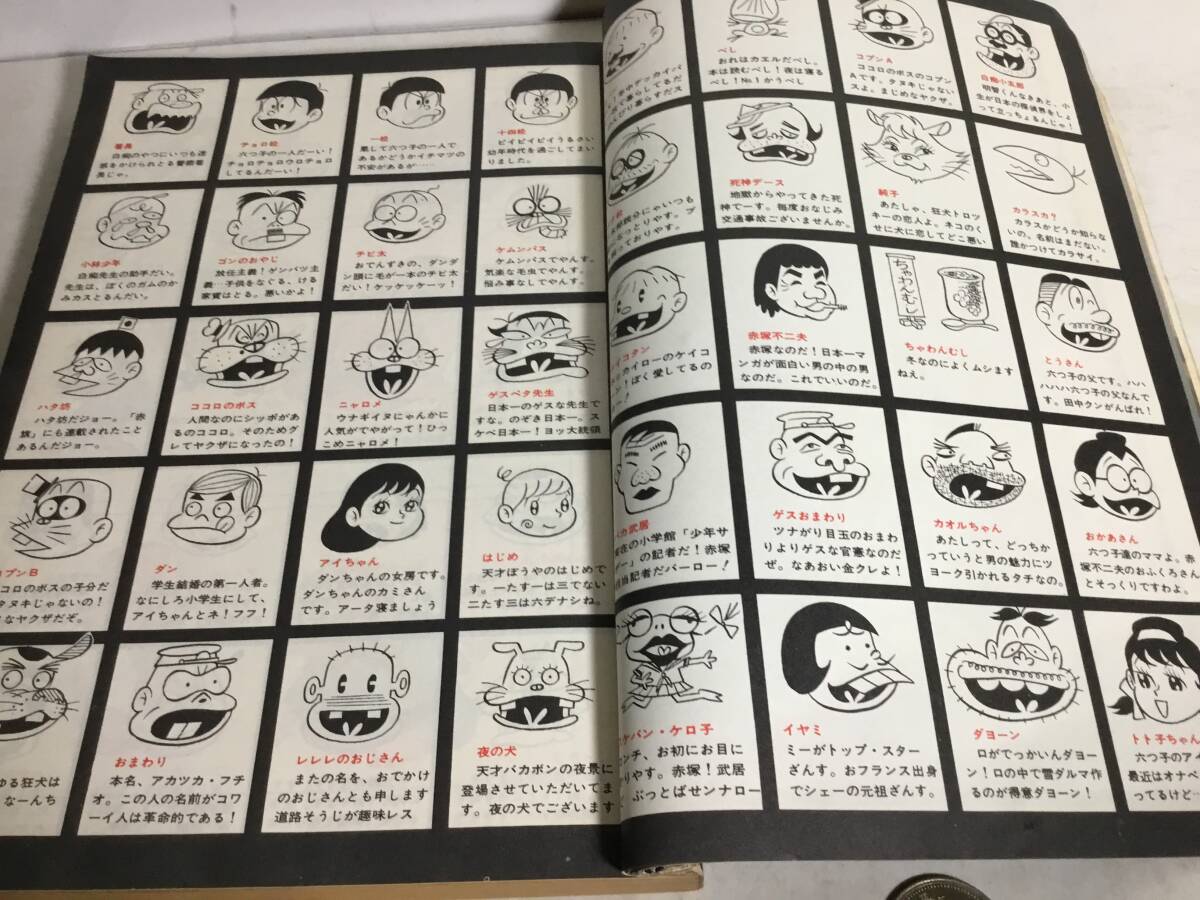 署長
白痴のやつにいつも迷
惑をかけられとる警察署
長じゃ。
チョロ松
六つ子の一人だーい!
チョロチョロウロチョロ
してるんだーい!
一松
果して六つ子の一人で
あるかどうかイチマツの
不安があるが……
十四松
ピイピイピイピイうるさい
幼年時代を過ごしてまい
りました。
小林少年
白痴先生の助手だい。
先生は、ぼくのガムのか
みカスとるんだい。
ゴンのおやじ
放任主義!ゲンバツ主
義…子供をなぐる、ける
家賃はとる。悪いかよ!
チビ太
おてんずきの、ダンダ
ン頭に毛が一本のチビ太
だい!ケッケッケーッ!
ケムンパス
ケムンパスでやんす。
気楽な毛虫でやんす。
悩み事なしでやんす。
ハタ坊
ハタ坊だジョー。「赤
旗」にも連載されたこと
あるんだジョー。
ココロのボス
人間なのにシッポがあ
るのココロ。そのためグ
レてヤクザになったの!
ニャロメ
ウナギイヌにゃんかに
人気がでやがって!ひっ
こめニャロメ!
ゲスペタ先生
日本一のゲスな先生で
すな。のぞき日本一。ス
ケベ日本一!ヨッ大統領
コブンB
ココロのボスの子分だ
タヌキじゃないの!
なヤクザだぞ。
ダン
学生結婚の第一人者。
なにしろ小学生にして、
アイちゃんとネ!フフ!
アイちゃん
ダンちゃんの女房です。
ダンちゃんのカミさん
です。アータ寝ましょう
はじめ
天才ぼうやのはじめで
す。一たす一は三でない
二たす三は六デナシね。
ゆる狂犬は
なーんち
おまわり
本名、アカツカ・フチ
オ。この人の名前がコワ
ーイ人は革命的である!
レレレのおじさん
またの名を、おでかけ
のおじさんとも申します
道路そうじが趣味レス
夜の犬
天才バカボンの夜景に
登場させていただいてま
す。夜の犬でございます
べし
おれはカエルだべし。
本は読むべし!夜は寝る
べし!No.1かうべし
コブンA
ココロのボスのコブン
Aです。タヌキじゃない
スよ。まじめなヤクザ。
白痴小五郎
明智くんなきあと、小
生が日本の探偵界をしょ
って立っちょるんじゃ!
死神デース
地獄からやってきた死
神でーす。毎度おなじみ
交通事故ございませんか。
純子
あたしゃ、狂犬トロツ
キーの恋人よ。ネコのく
せに犬に恋してどこ悪い
カラスカ?
カラスかどうか知らな
いの、名前はまだない。
誰かつけてカラサイ。
イコタン
カイローのケイコ
!ぼく愛してるの
赤塚不二夫
赤塚なのだ!日本一マ
ンガが面白い男の中の男
なのだ。これでいいのだ。
ちゃわんむし
ちゃわんむし
冬なのによくムシます
ねえ。
とうさん
六つ子の父です。ハハ
ハハハ六つ子の父なんで
す。田中クンがんばれ!
バカ武居
現在の小学館「少年サ
デー」の記者だ!赤塚
担当記者だバーロー!
ゲスおまわり
ツナがり目玉のおまわ
りよりゲスな官憲なのだ
ぜ。なあおい金クレよ!
カオルちゃん
あたしって、どっちか
っていうと男の魅力にツ
ヨーク引かれるタチなの。
おかあさん
六つ子達のママよ。赤
塚不二夫のおふくろさん
とそっくりですわよ。
スケバン・ケロ子
ンチ、お初にお目に
りやす。赤塚!武居
ぶっとばせンナロー
イヤミ
ミーがトップ・スター
ざんす。おフランス出身
でシェーの元祖ざんす。
ダヨーン
ロがでっかいんダヨー
ン!口の中で雪ダルマ作
るのが得意ダヨーン!
トト子ちゃん
六つ子のアイ
最近はオナペ
ってるけど…